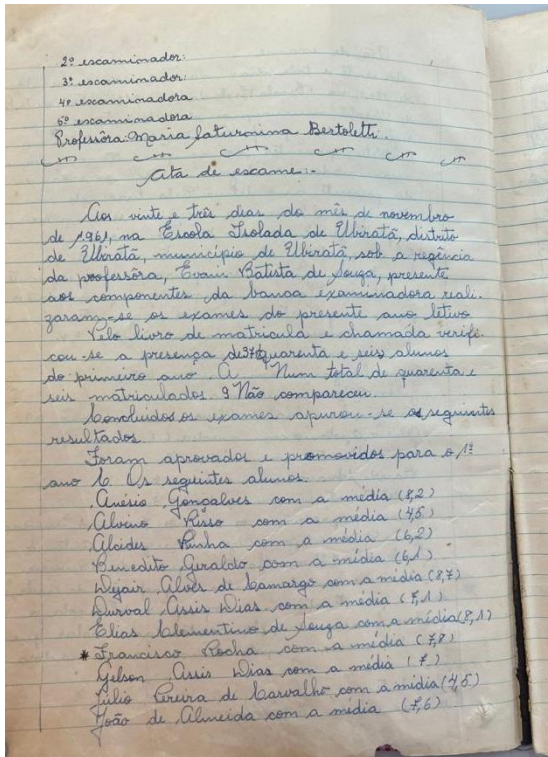 2º escaminador:
3º escaminador:
4º escaminadora
5º escaminadora
Professôra: Maria Saturnina Bertoletti.
Ata de escame:-
Aos vinte e três dias do mês de novembro
de 1961, na Escola Isolada de Ubiratã, distrito
de Ubiratã, município de Ubiratã, sob a regência
da professôra, Evanir Batista de Souza, presente
aos componentes da banca examinadora reali-
zaram-se os exames do presente ano letivo
Pelo livro de matricula e chamada verifi-
cou-se a presença de 37 quarenta e seis alunos
do primeiro ano. A Num total de quarenta e
seis matriculados 9 Não compareceu.
Concluidos os exames apurou-se os seguintes
resultados.
Foram aprovados e promovidos para o 1º
ano C Os seguintes alunos.
Anésio Gonçalves com a média (8,2)
Alvino Risso com a média (4,5)
Alcides Cunha com a média (6,2)
Benedito Geraldo com a média (6,1)
Dejair Alves de Camargo com a média (8,7)
Durval Assis Dias com a média (7,1)
Elias Clementino de Souza com a média (8,1)
* Francisco Rocha com a média (7,8)
Gelson Assis Dias com a média (7)
Júlio Pereira de Carvalho com a média (4,5)
João de Almeida com a média (7,6)